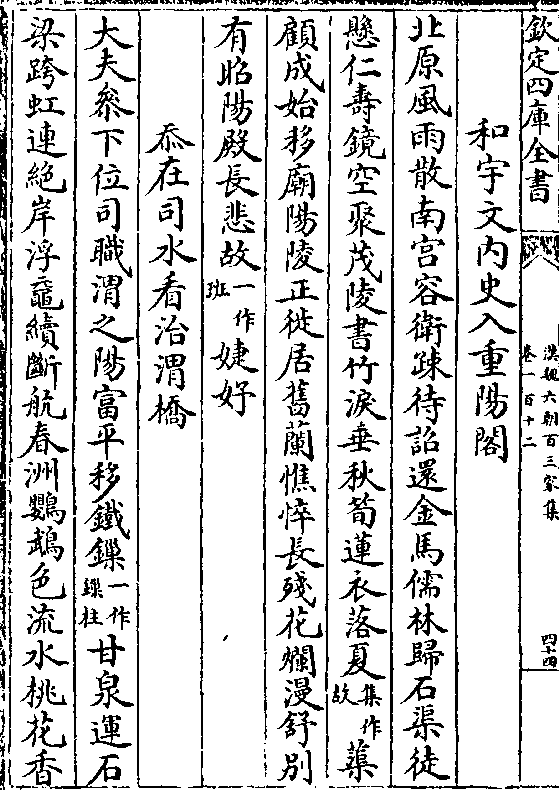 欽定四庫全書
漢魏六朝百三家集
卷一百十二
四十四
和宇文内史入重陽閣
北原風雨散南宫容衛疎待詔還金馬儒林歸石渠徒
懸仁壽鏡空聚茂陵書竹淚垂秋筍蓮衣落夏集作故蕖
顧成始移廟陽陵正徙居舊蘭憔悴長殘花爛漫舒别
有昭陽殿長悲故一作班婕妤
忝在司水看治渭橋
大夫叅下位司職渭之陽富平移鐵鏁一作鏁柱甘泉運石
梁跨虹連絶岸浮黿續斷航春洲鸚鵡色流水桃花香